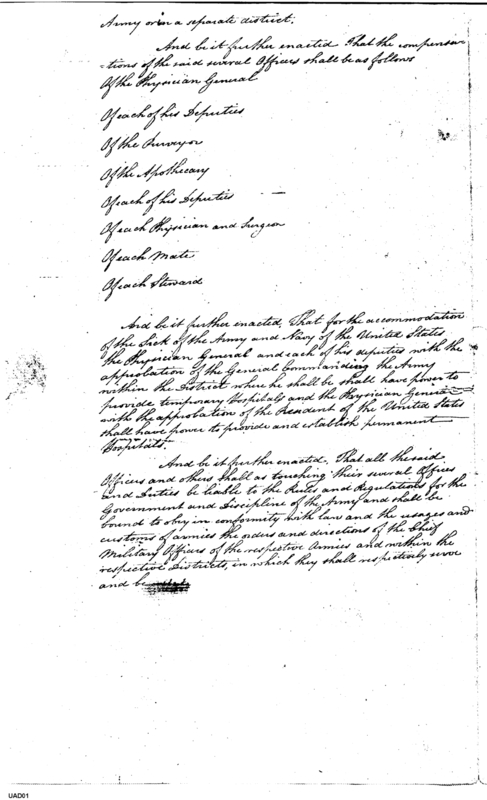 Army or in a separate district;
And be it further enacted That the compensa-
-tions of the said several Officers shall be as follows
Of the Physician General
Of each of his Deputies
Of the Purveyor
Of the Apothecary
Of each of his Deputies
Of each Physician and Surgeon
Of each Mate
Of each Steward
And be it further enacted, That for the accommodation
of the Sick of the Army and Navy of the United States
the Physician General and each of his deputies with the
approbation of the General Commanding the Army
within the District where he shall be shall have power to
provide temporary Hospitals and the Physician General
with the approbation of the President of the United States
shall have power to provide and establish permanent
Hospitals.
And be it further enacted, That all the said
Officers and others shall as touching their several Offices
and Duties be liable to the Rules and Regulations for the
Government and Discipline of the Army and shall be
bound to obey in conformity with law and the usages and
customs of armies the orders and directions of the Chief
Military Officers of the respective Armies and within the
respective Districts, in which they shall respectively serve
and be
UAD01